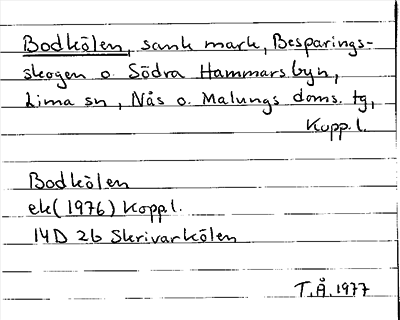 Bodkölen, sank mark, Besparings-
skogen o. Södra Hammarsbyn,
Lima sn, Nås o. Malungs doms. tg,
Kopp. l.
Bodkölen
ek (1976) Kopp l.
14D 2b Skrivarkölen
T.Å. 1977